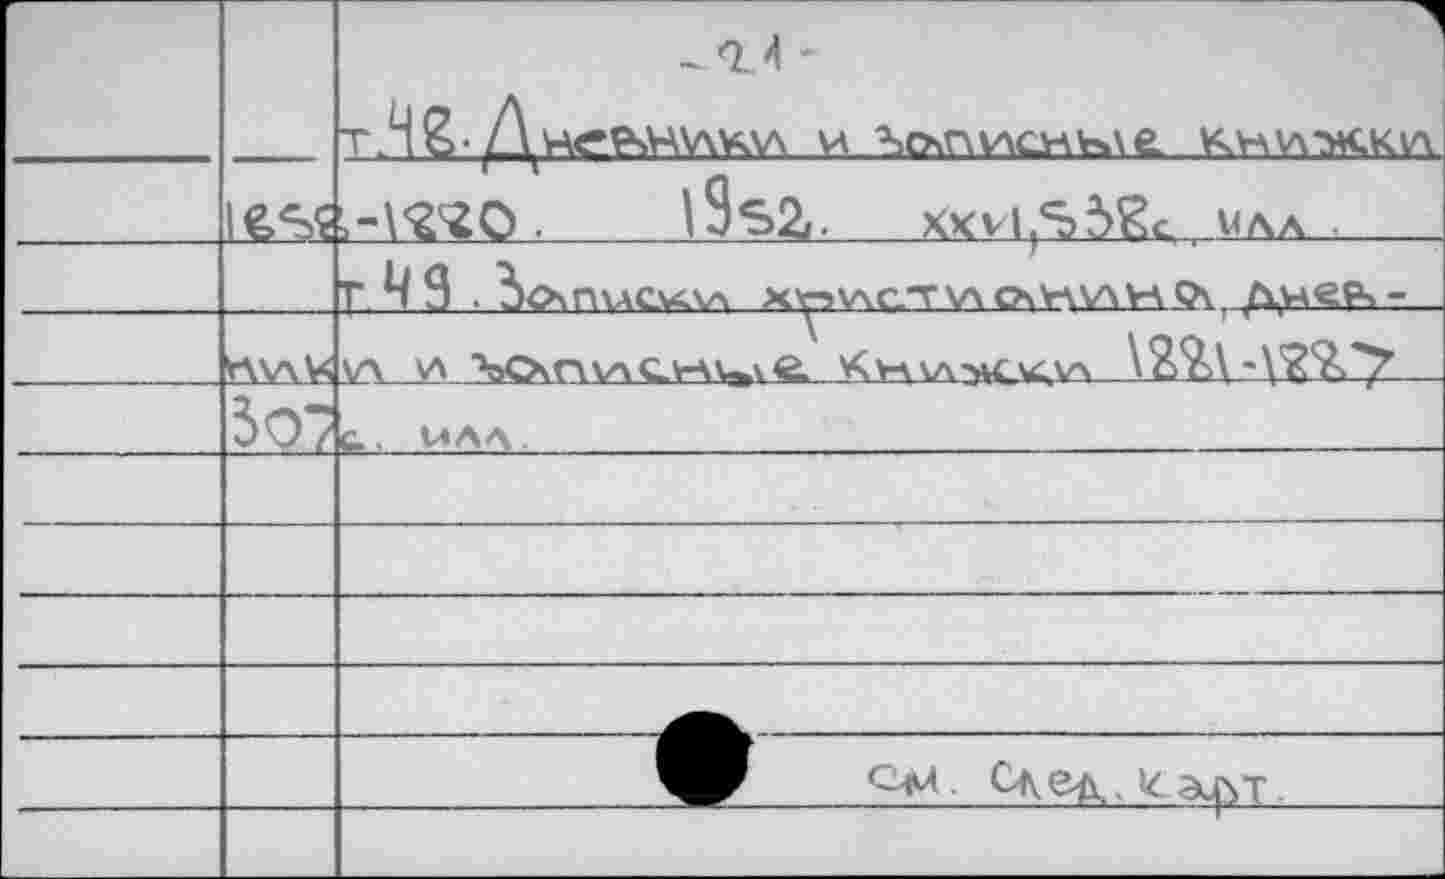 - 21 -
т. 48. Дневники и записные книжки
1858-1880. 1952. XXVI, 538 с. илл.
т. 49. Записки христианина, днев-
ники и записные книжки 1881-1887
307 с. илл.
см. след. карт.